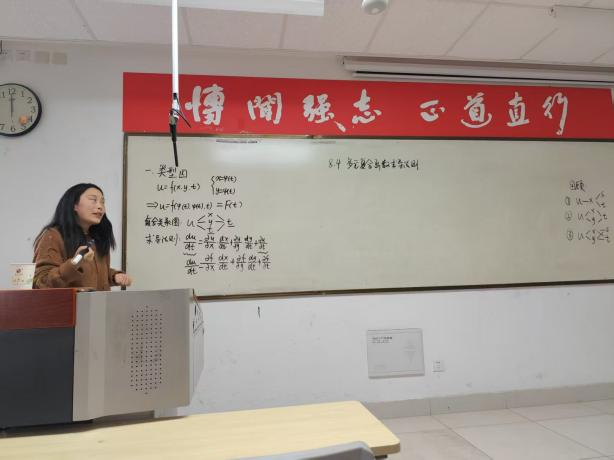 博闻强志 正道直行
8.4 多元复合函数求导法则
一.类型图
u=f(x,y,t) {x=φ(t)
y=ψ(t)
⇒u=f(φ(t),ψ(t),t) = F(t)
复合关系图: u< x y t >t
求导法则: du/dt = ∂u/∂x dx/dt + ∂u/∂y dy/dt + ∂u/∂t
du/dt = ∂f/∂x dx/dt + ∂f/∂y dy/dt + ∂f/∂t
① u—x< s t
② u< x y >t
③ u< x y > s t